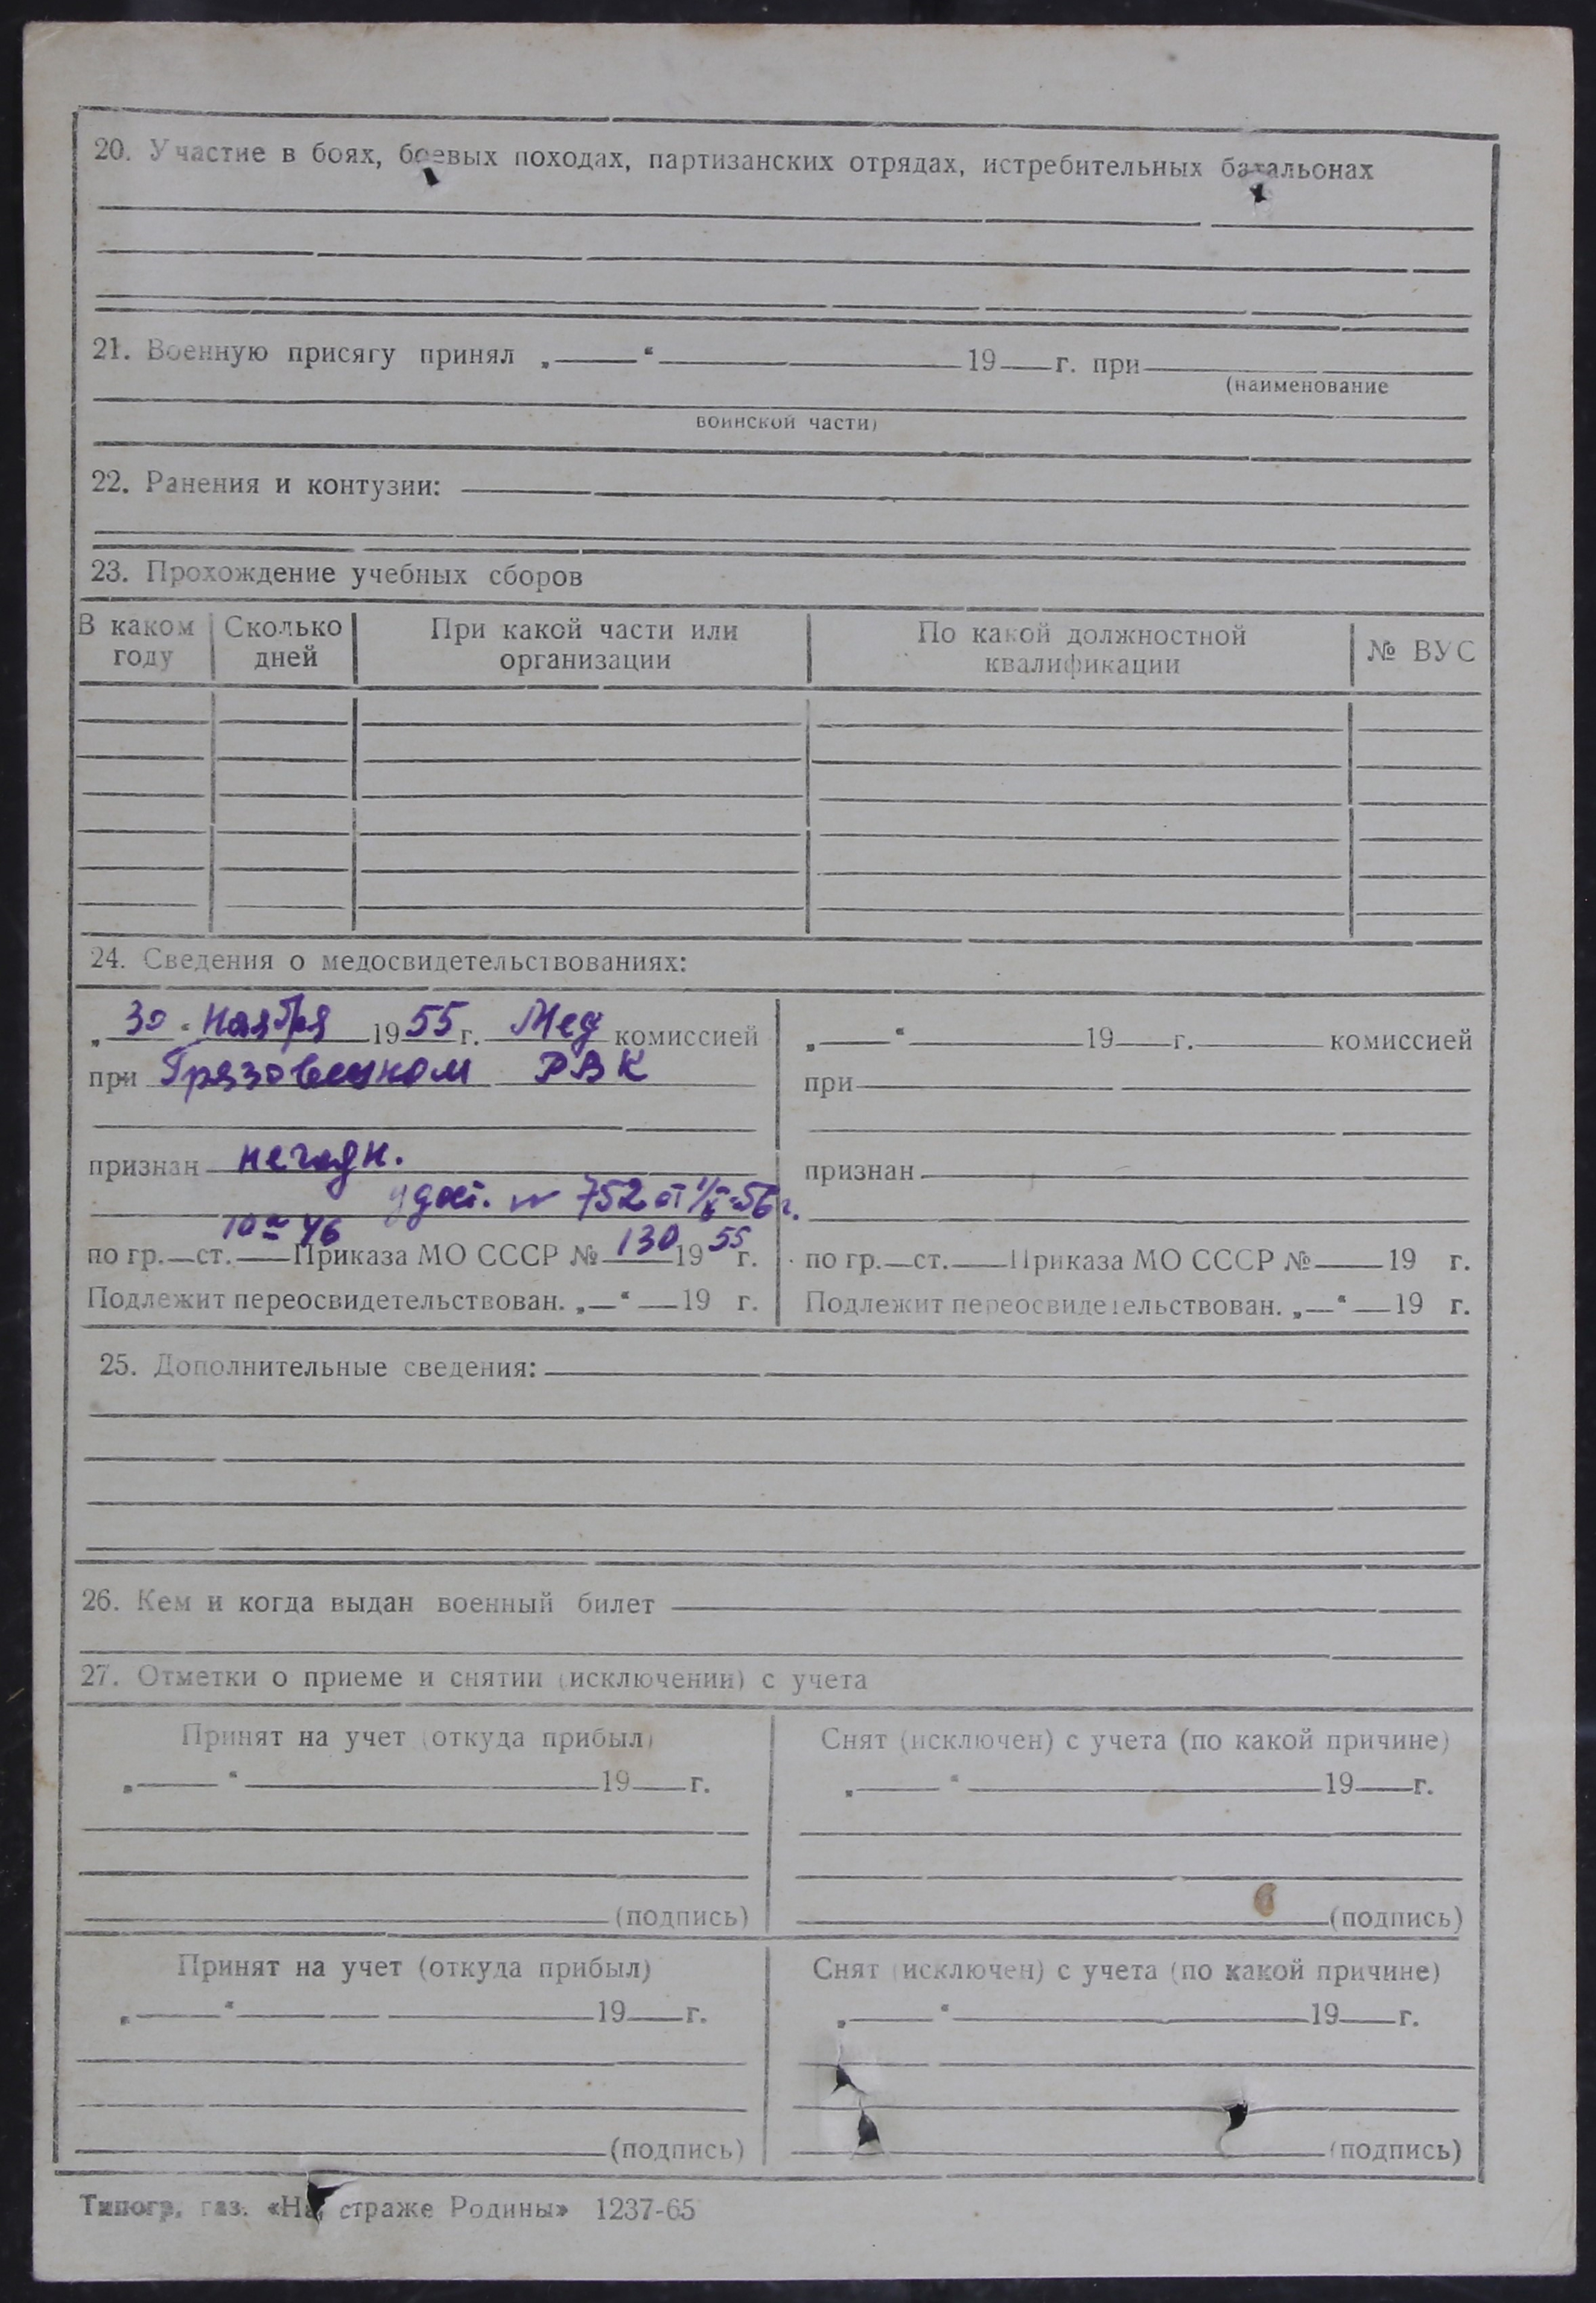 20. Участие в боях, боевых походах, партизанских отрядах, истребительных батальонах
21. Военную присягу принял „ “ 19 г. при
(наименование
воинской части)
22. Ранения и контузии:
23. Прохождение учебных сборов
В каком году Сколько дней При какой части или организации По какой должностной квалификации № ВУС
24. Сведения о медосвидетельствованиях:
„30“ ноября 1955 г. Мед комиссией
при Грязовецком РВК
признан негодн.
удост. № 752 от 56 г.
по гр. 10 ст. 46 Приказа МО СССР № 130 1955 г.
Подлежит переосвидетельствован. „ “ 19 г.
„ “ 19 г. комиссией
при
признан
по гр. ст. Приказа МО СССР № 19 г.
Подлежит переосвидетельствован. „ “ 19 г.
25. Дополнительные сведения:
26. Кем и когда выдан военный билет
27. Отметки о приеме и снятии (исключении) с учета
Принят на учет (откуда прибыл)
„ “ 19 г.
(подпись)
Снят (исключен) с учета (по какой причине)
„ “ 19 г.
(подпись)
Принят на учет (откуда прибыл)
„ “ 19 г.
(подпись)
Снят (исключен) с учета (по какой причине)
„ “ 19 г.
(подпись)
Типогр. газ. «На страже Родины» 1237-65